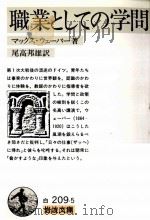 職業としての学問
マックス・ウェーバー著
尾高邦雄訳
第1次大戦後の混迷のドイツ。青年たち
は事実のかわりに世界観を、認識のかわ
りに体験を、教師のかわりに指導者を欲
した。学問と政策
の峻別を説くこの
名高い講演で、ウ
ェーバー(1864-
1920)はこうした
風潮を鍛えらるべ
き弱さだと批判し、「日々の仕事(ザッヘ)
に帰れ」と彼らを叱咤する。それは聴衆に
「脅かすような」印象を与えたという。
白 209-5
岩波文庫